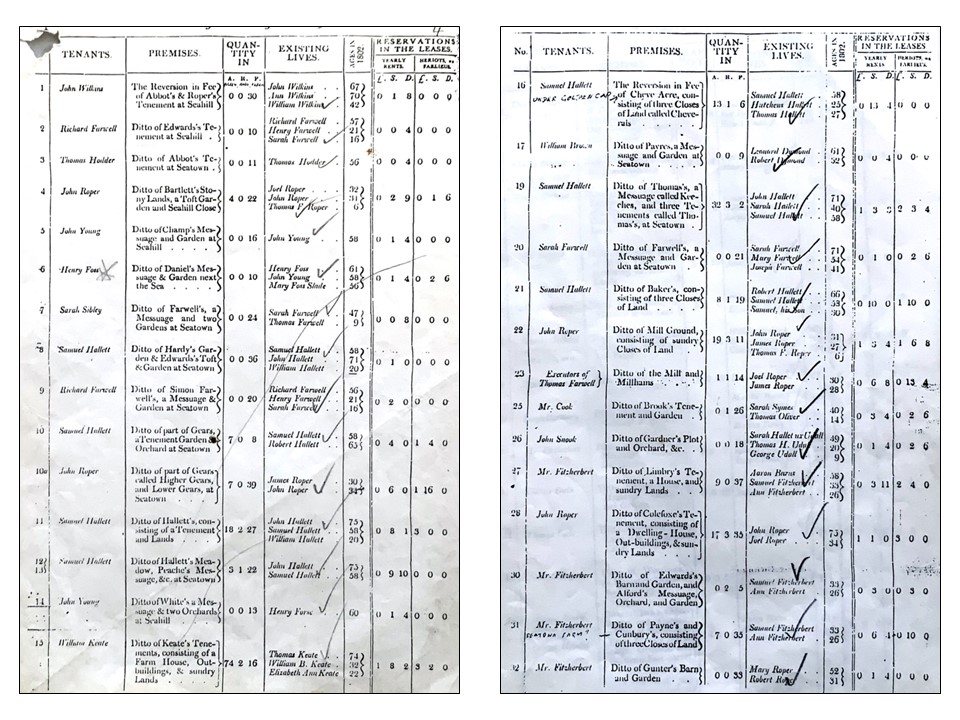 4
TENANTS. PREMISES. QUAN- TITY IN EXISTING LIVES. AGES IN 1802. RESERVATIONS IN THE LEASES
YEARLY RENTS. HERIOTS OR FARLIEUS.
A. R. P. £. S. D. £. S. D.
1 John Wilkins The Reversion in Fee of Abbot's & Roper's Tenement at Seahill 0 0 30 John Wilkins Ann Wilkins William Wilkins 67 70 42 0 1 8 0 0 0
2 Richard Farwell Ditto of Edwards's Te- nement at Seahill 0 0 10 Richard Farwell Henry Farwell Sarah Farwell 57 21 16 0 0 4 0 0 0
3 Thomas Hodder Ditto of Abbot's Te- nement at Seatown 0 0 11 Thomas Hodder 56 0 0 4 0 0 0
4 John Roper Ditto of Bartlett's Sto- ny Lands, a Toft Gar- den and Seahill Close 4 0 22 Joel Roper John Roper Thomas F. Roper 32 31 6 0 2 9 0 1 6
5 John Young Ditto of Champ's Mes- suage and Garden at Seahill 0 0 16 John Young 58 0 1 4 0 0 0
6 Henry Foss Ditto of Daniel's Mes- suage & Garden next the Sea 0 0 10 Henry Foss John Young Mary Foss Slade 61 58 56 0 1 4 0 2 6
7 Sarah Sibley Ditto of Farwell's, a Messuage and two Gardens at Seatown 0 0 24 Sarah Farwell Thomas Farwell 47 9 0 0 8 0 0 0
8 Samuel Hallett Ditto of Hardy's Gar- den & Edwards's Toft & Garden at Seatown 0 0 36 Samuel Hallett John Hallett William Hallett 58 71 20 0 1 0 0 0 0
9 Richard Farwell Ditto of Simon Far- well's, a Messuage & Garden at Seatown 0 0 20 Richard Farwell Henry Farwell Sarah Farwell 56 21 16 0 2 0 0 0 0
10 Samuel Hallett Ditto of part of Gears, a Tenement Garden & Orchard at Seatown 7 0 8 Samuel Hallett Robert Hallett 58 65 0 4 0 1 4 0
10a John Roper Ditto of part of Gears called Higher Gears, and Lower Gears, at Seatown 7 0 39 James Roper John Roper 30 34 0 6 0 1 16 0
11 Samuel Hallett Ditto of Hallett's, con- sisting of a Tenement and Lands 18 2 27 John Hallett Samuel Hallett William Hallett 75 58 20 0 8 1 3 0 0
12 13 Samuel Hallett Ditto of Hallett's Mea- dow, Peache's Mes- suage, &c. at Seatown 3 1 22 John Hallett Samuel Hallett 75 58 0 9 10 0 0 0
14 John Young Ditto of White's a Mes- suage & two Orchards at Seahill 0 0 13 Henry 60 0 1 4 0 0 0
15 William Keate Ditto of Keate's Tene- ments, consisting of a Farm House, Out- buildings, & sundry Lands 74 2 16 Thomas Keate William B. Keate Elizabeth Ann Keate 74 32 22 1 8 2 3 2 0
No. TENANTS. PREMISES. QUAN- TITY IN EXISTING LIVES. AGES IN 1802. RESERVATIONS IN THE LEASES
YEARLY RENTS HERIOTS OR FARLIEUS.
A. R. P. £. S. D. £. S. D.
16 Samuel Hallett UNDER GOLDEN CAP The Reversion in Fee of Cheve Acre, con- sisting of three Closes of Land called Cheve- rals 13 1 6 Samuel Hallett Hutchens Hallett Thomas Hallett 58 25 27 0 13 4 0 0 0
17 William Brown Ditto of Payres, a Mes- suage and Garden at 0 0 9 Leonard Dymond Robert Dymond 61 52 0 0 4 0 0 0
19 Samuel Hallett Ditto of Thomas's, a Messuage called Kee- ches, and three Te- nements called Tho- mas's, at Seatown 32 3 2 John Hallett Sarah Hallett Samuel Hallett 71 40 58 1 3 3 2 3 4
20 Sarah Farwell Ditto of Farwell's, a Messuage and Gar- den at Seatown 0 0 21 Sarah Farwell Mary Farwell Joseph Farwell 71 54 41 0 1 0 0 2 6
21 Samuel Hallett Ditto of Baker's, con- sisting of three Closes of Land 8 1 19 Robert Hallett Samuel Hallett Samuel, his Son 66 58 30 0 10 0 1 10 0
22 John Roper Ditto of Mill Ground, consisting of sundry Closes of Land 19 3 11 John Roper James Roper Thomas F. Roper 31 27 6 1 3 4 1 6 8
23 Executors of Thomas Farwell Ditto of the Mill and Millhams 1 1 14 Joel Roper James Roper 30 28 0 6 8 0 13 4
25 Mr. Cook Ditto of Brook's Tene- ment and Garden 0 1 26 Sarah Symes Thomas Oliver 40 14 0 3 4 0 2 6
26 John Snook Ditto of Gardner's Plot and Orchard, &c. 0 0 18 Sarah Hallet ux Udall Thomas H. Udall George Udall 49 20 9 0 1 4 0 2 6
27 Mr. Fitzherbert Ditto of Limbry's Te- nement, a House, and sundry Lands 9 0 37 Aaron Barns Samuel Fitzherbert Ann Fitzherbert 58 33 26 0 3 11 2 4 0
28 John Roper Ditto of Colefoxe's Te- nement, consisting of a Dwelling-House, Out-buildings, & sun- dry Lands 17 3 35 John Roper Joel Roper 75 34 1 1 0 3 0 0
30 Mr. Fitzherbert Ditto of Edwards's Barn and Garden, and Alford's Messuage, Orchard, and Garden 0 2 5 Samuel Fitzherbert Ann Fitzherbert 33 26 0 3 0 0 3 0
31 Mr. Fitzherbert Ditto of Payne's and Cunbury's, consisting of three Closes of Land 7 0 35 Samuel Fitzherbert Ann Fitzherbert 33 26 0 6 4 0 10 0
32 Mr. Fitzherbert Ditto of Gunter's Barn and Garden 0 0 33 Mary Roper Robert Roper 52 31 0 1 4 0 0 0